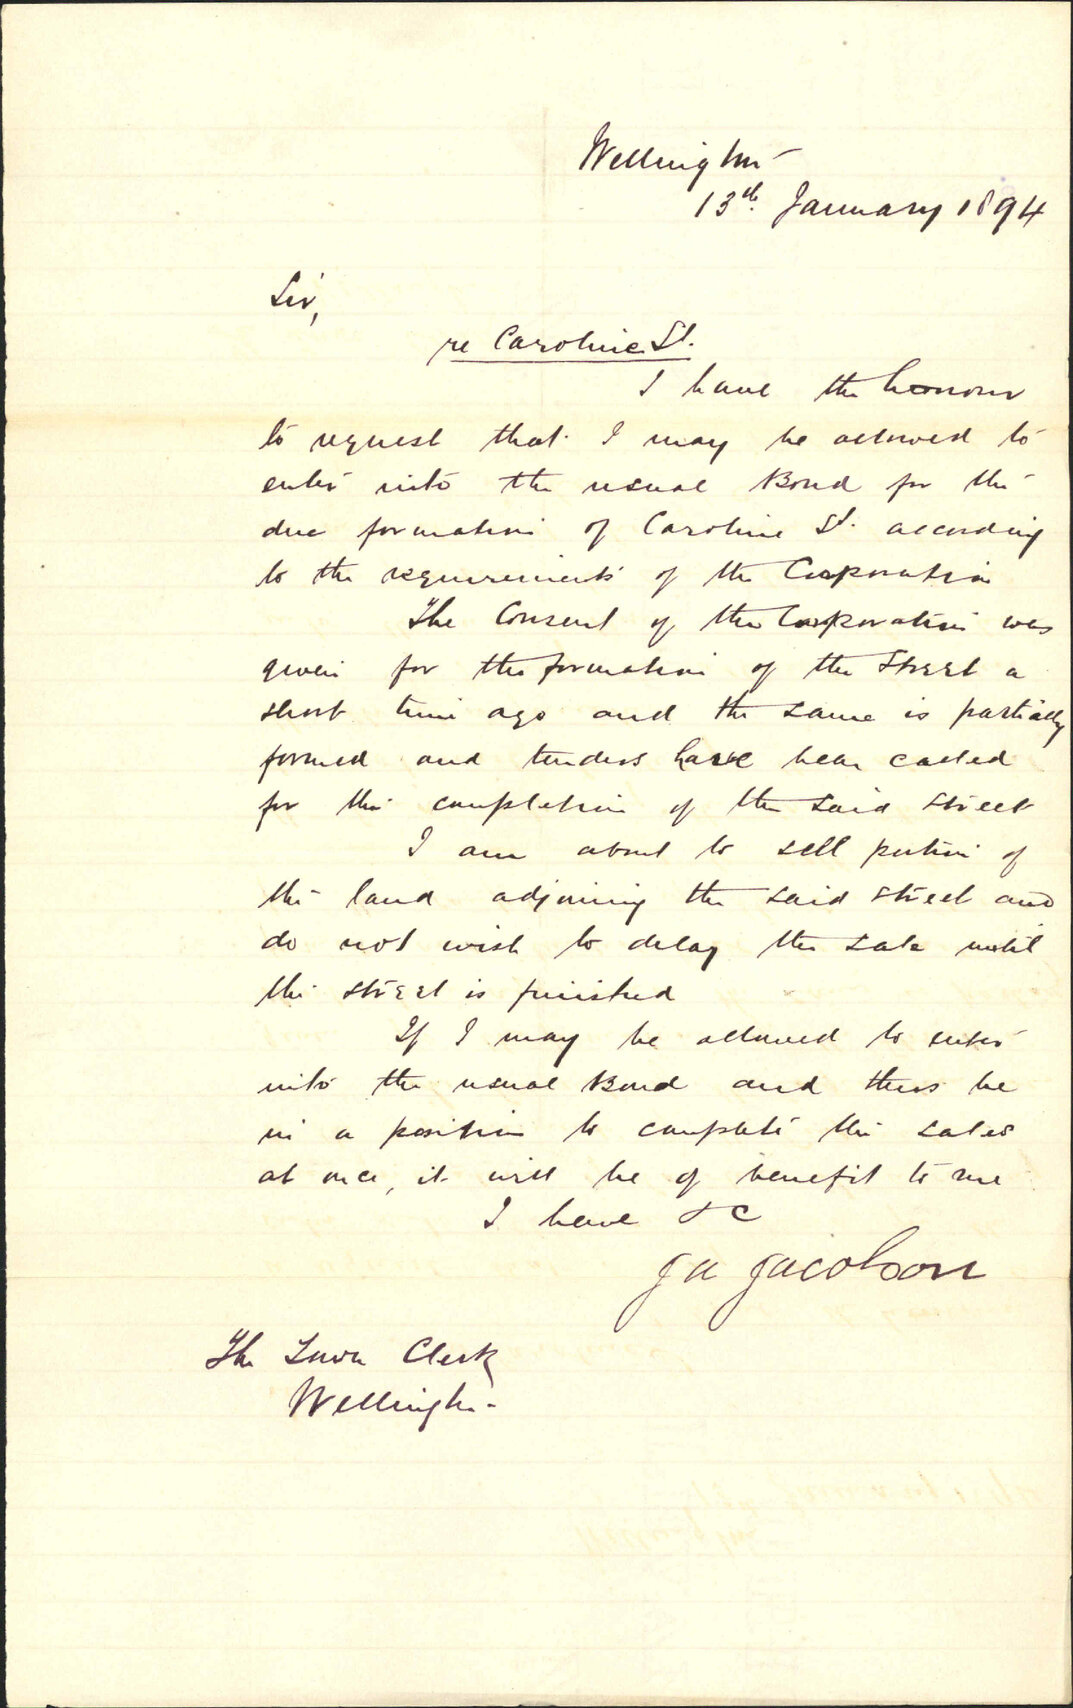 Wellington
13th January 1894
Sir,
re Caroline St.
I have the honour
to request that I may be allowed to
enter into the usual Bond for the
due formation of Caroline St. according
to the requirements of the Corporation
The Consent of the Corporation was
given for the formation of the Street a
short time ago and the same is partially
formed and tenders have been called
for the completion of the said street
I am about to sell portion of
the land adjoining the said street and
do not wish to delay the sale until
the street is finished
If I may be allowed to enter
into the usual Bond and thus be
in a position to complete the sales
at once, it will be of benefit to me
I have &c
Jacobson
The Town Clerk
Wellington.